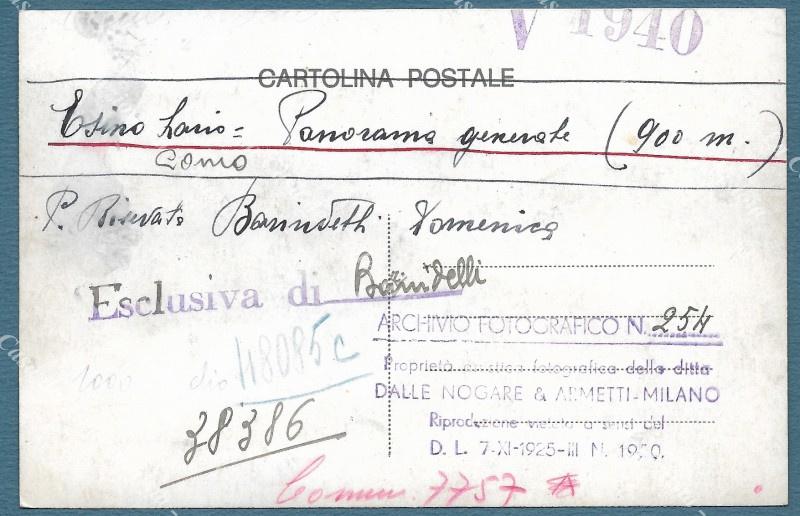 V 1940
CARTOLINA POSTALE
Esino Lario = Panorama generale (900 m.)
Como
P. Riservato Barindelli Domenica
Esclusiva di Barindelli
ARCHIVIO FOTOGRAFICO N. 254
1000 dio 48085c
Proprietà artistica fotografica della ditta
DALLE NOGARE & ARMETTI-MILANO
38386
Riproduzione vietata a sensi del
D. L. 7-XI-1925-III N. 1950.
Comm. 7757